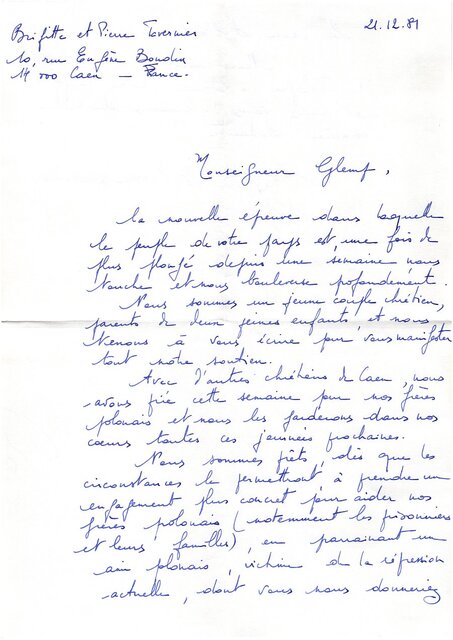 Brigitte et Pierre Tavernier
21.12.81
10, rue Eugène Boudin
14 000 Caen — France.
Monseigneur Glemp,
la nouvelle épreuve dans laquelle
le peuple de votre pays est, une fois de
plus plongé depuis une semaine nous
touche et nous bouleverse profondément.
Nous sommes un jeune couple chrétien,
parents de deux jeunes enfants, et nous
tenons à vous écrire pour vous manifester
tout notre soutien.
Avec d'autres chrétiens de Caen, nous
avons prié cette semaine pour nos frères
polonais et nous les garderons dans nos
cœurs toutes ces journées prochaines.
Nous sommes prêts, dès que les
circonstances le permettront, à prendre un
engagement plus concret pour aider nos
frères polonais (notamment les prisonniers
et leurs familles), en parrainant un
ami polonais, victime de la répression
actuelle, dont vous nous donneriez